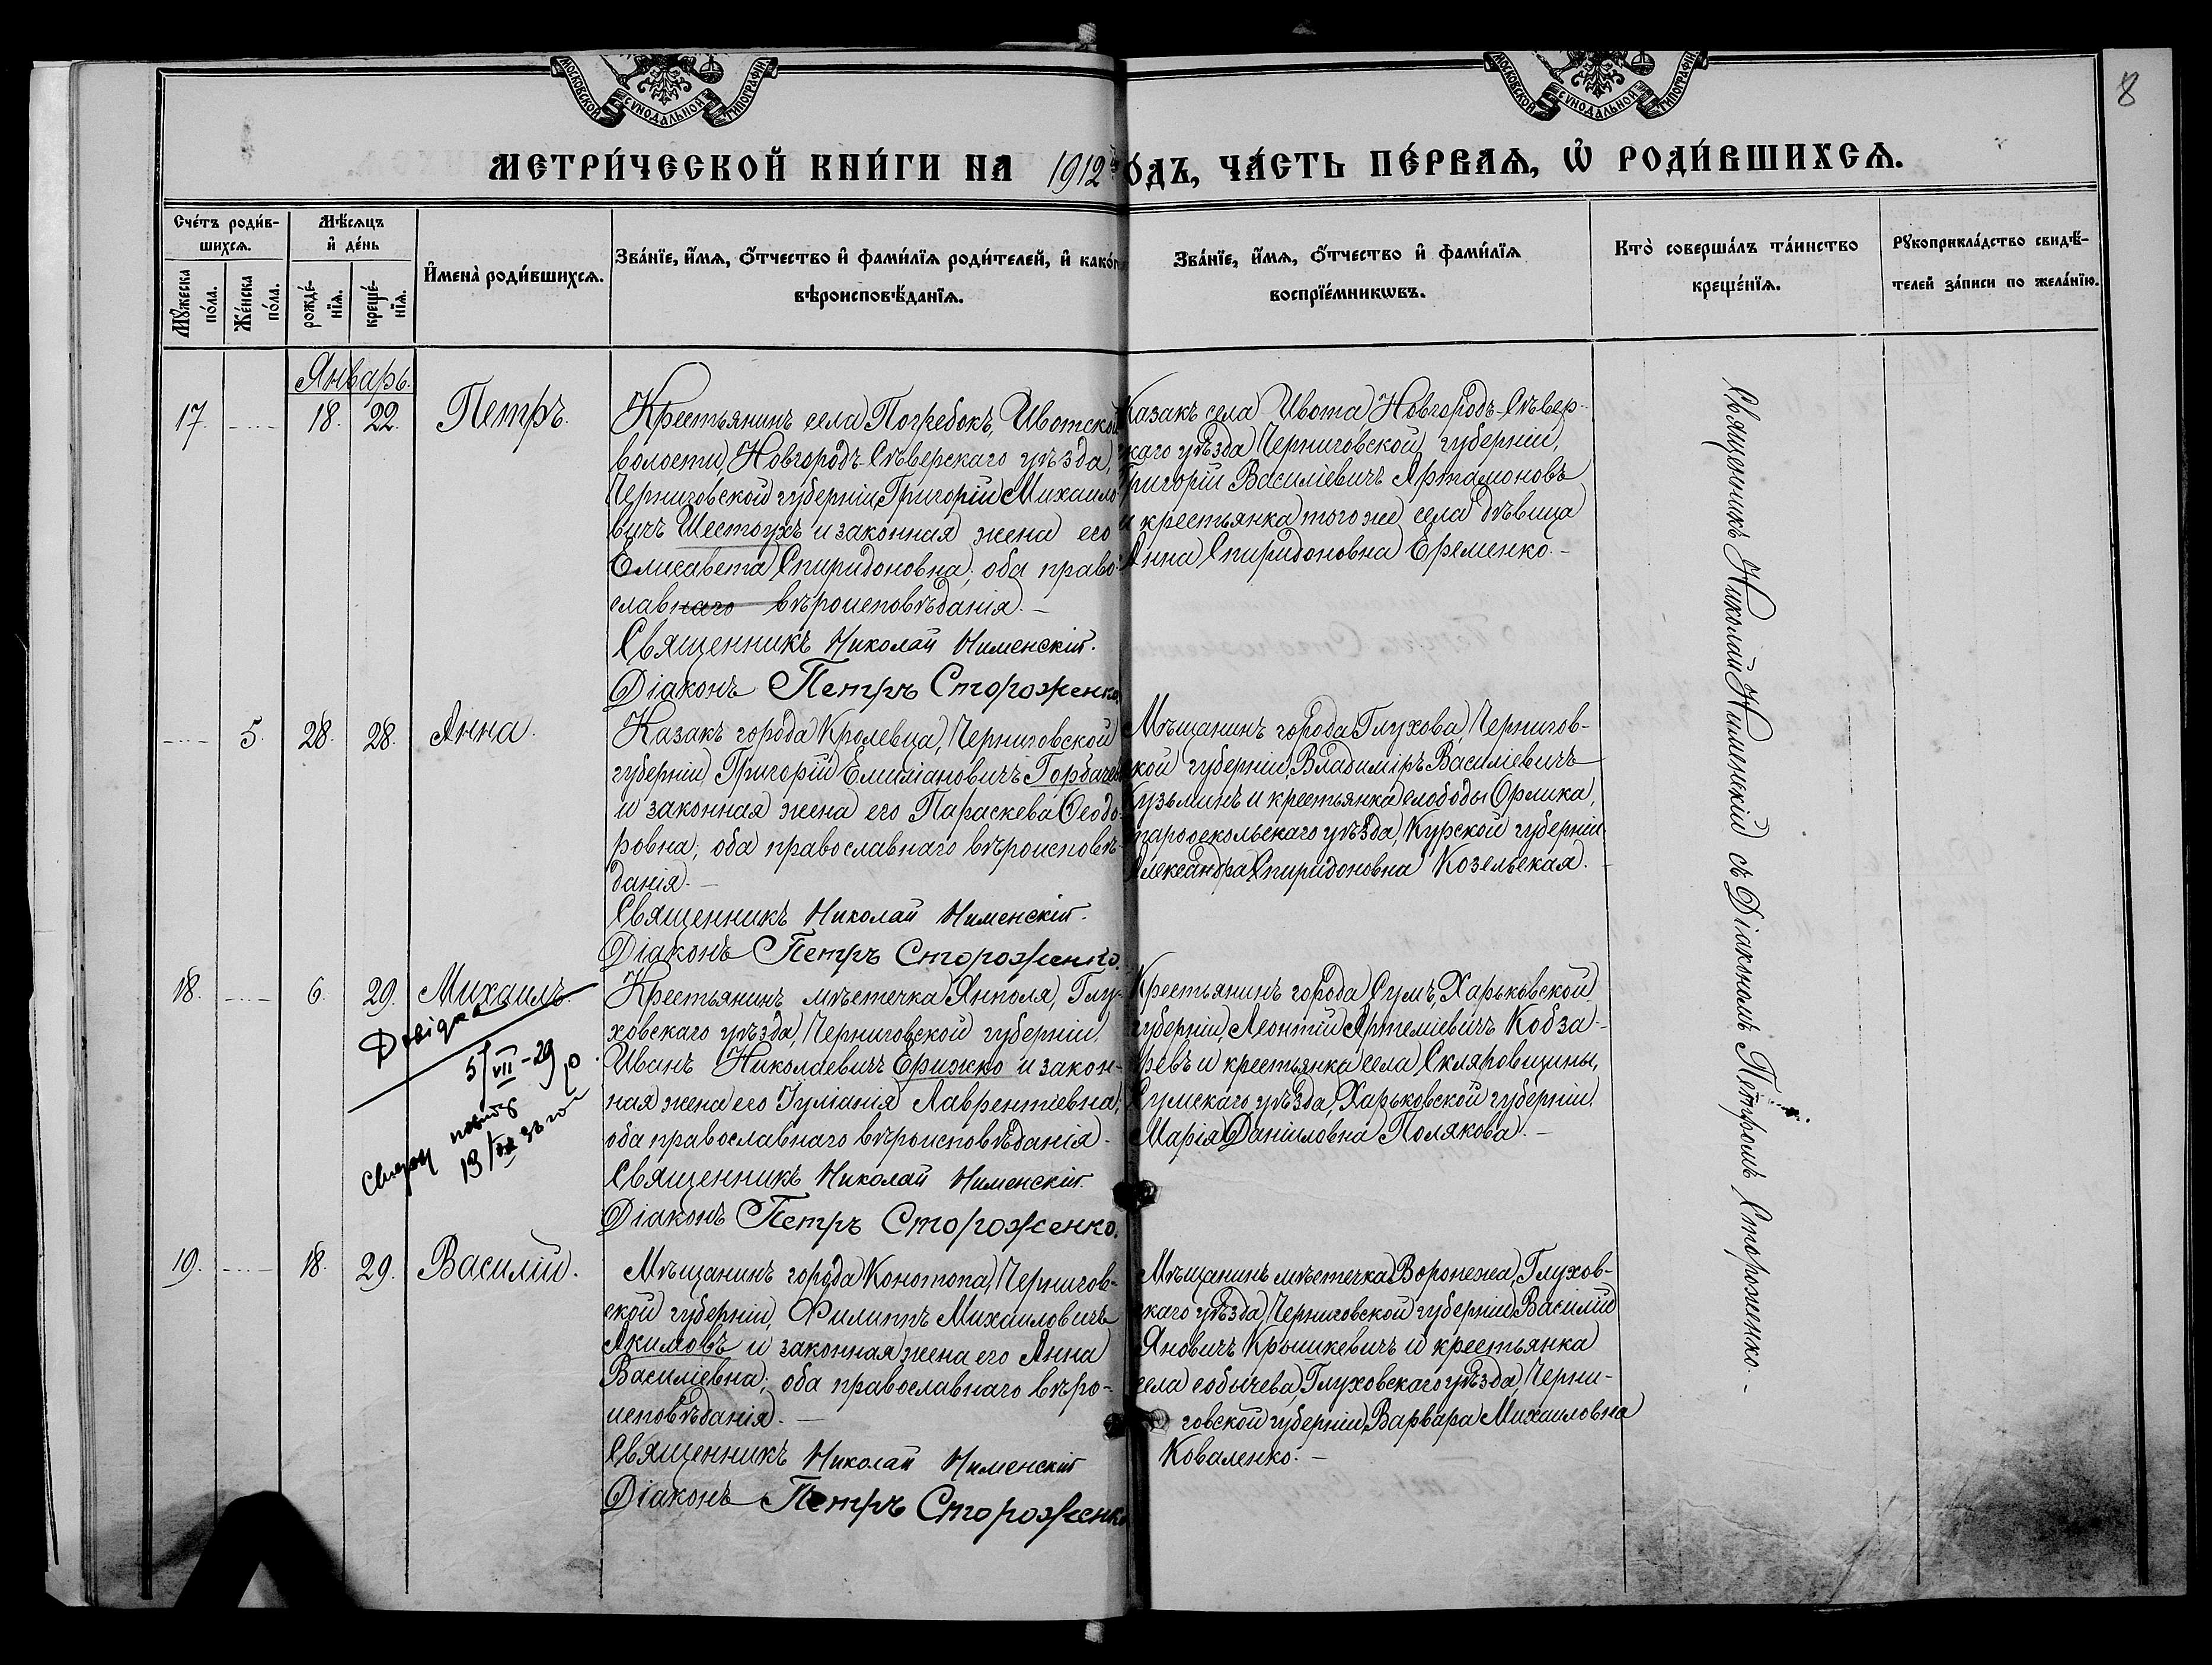 МОСКОВСКОЙ СѴНОДАЛЬНОЙ ТИПОГРАФІИ
МОСКОВСКОЙ СѴНОДАЛЬНОЙ ТИПОГРАФІИ
8
МЕТРИ́ЧЕСКОЙ КНИ́ГИ НА 1912 ОДЪ, ЧА́СТЬ ПЕ́РВАѦ, Ѡ҆ РОДИ́ВШИХСѦ.
Сче́тъ роди́в-
шихсѧ.
Мѣ́сѧцъ
и҆ де́нь
Мꙋ́жеска
по́ла.
Же́нска
по́ла.
рожде́-
нїѧ.
креще́-
нїѧ.
И҆мена̀ роди́вшихсѧ.
Зва́нїе, и҆́мѧ, ѻ҆́тчество и҆ фами́лїѧ роди́телей, и҆ како́г
вѣроисповѣ́данїѧ.
Зва́нїе, и҆́мѧ, ѻ҆́тчество и҆ фами́лїѧ
воспрїе́мникѡвъ.
Кто̀ соверша́лъ та́инство
креще́нїѧ.
Рꙋкоприкла́дство свидѣ́-
телей за́писи по жела́нїю.
Январь.
17. 18. 22. Петръ.
Крестьянинъ села Погребокъ, Ивотской
волости, Новгородъ-Сѣверскаго уѣзда,
Черниговской губерніи, Григорій Михаило
вичъ Шестоухъ и законная жена его
Елисавета Спиридоновна; оба право-
славнаго вѣроисповѣданія. —
Священникъ Николай Нименскій.
Діаконъ Петръ Стороженко
Казакъ села Ивота, Новгородъ-Сѣвер-
скаго уѣзда Черниговской губерніи,
Григорій Василіевичъ Артамоновъ
и крестьянка того же села дѣвица
Анна Спиридоновна Еременко. —
5. 28. 28. Анна.
Казакъ города Кролевца, Черниговской
губерніи, Григорій Емиліановичъ Горбачев
и законная жена его Параскева Ѳеодо-
ровна; оба православнаго вѣроисповѣ-
данія. —
Священникъ Николай Нименскій.
Діаконъ Петръ Стороженко.
Мѣщанинъ города Глухова, Чернигов-
ской губерніи, Владиміръ Василіевичъ
Кузьминъ и крестьянка слободы Орлика,
Старооскольскаго уѣзда, Курской губерніи
Александра Спиридоновна Козельская. —
18. 6. 29. Михаилъ.
Довідка
5/VII-29 р.
Крестьянинъ мѣстечка Янполя, Глу-
ховскаго уѣзда, Черниговской губерніи,
Иванъ Николаевичъ Ерижко и закон-
ная жена его Іуліанія Лаврентіевна;
оба православнаго вѣроисповѣданія.
Священникъ Николай Нименскій.
Діаконъ Петръ Стороженко.
Крестьянинъ города Сумъ, Харьковской
губерніи, Леонтій Артеміевичъ Кобза-
ревъ и крестьянка села Скляровщины,
Сумскаго уѣзда, Харьковской губерніи,
Марія Даніиловна Полякова. —
19. 18. 29. Василій.
Мѣщанинъ города Конотопа, Чернигов-
ской губерніи, Филиппъ Михаиловичъ
Акимовъ и законная жена его Анна
Василіевна; оба православнаго вѣро-
исповѣданія. —
Священникъ Николай Нименскій
Діаконъ Петръ Стороженко
Мѣщанинъ мѣстечка Воронежа, Глухов-
скаго уѣзда, Черниговской губерніи, Василій
Яновичъ Крышкевичъ и крестьянка
села Собичева, Глуховскаго уѣзда, Черни-
говской губерніи, Варвара Михаиловна
Коваленко. —
Священникъ Николай Нименскій съ Діакономъ Петромъ Стороженко. —